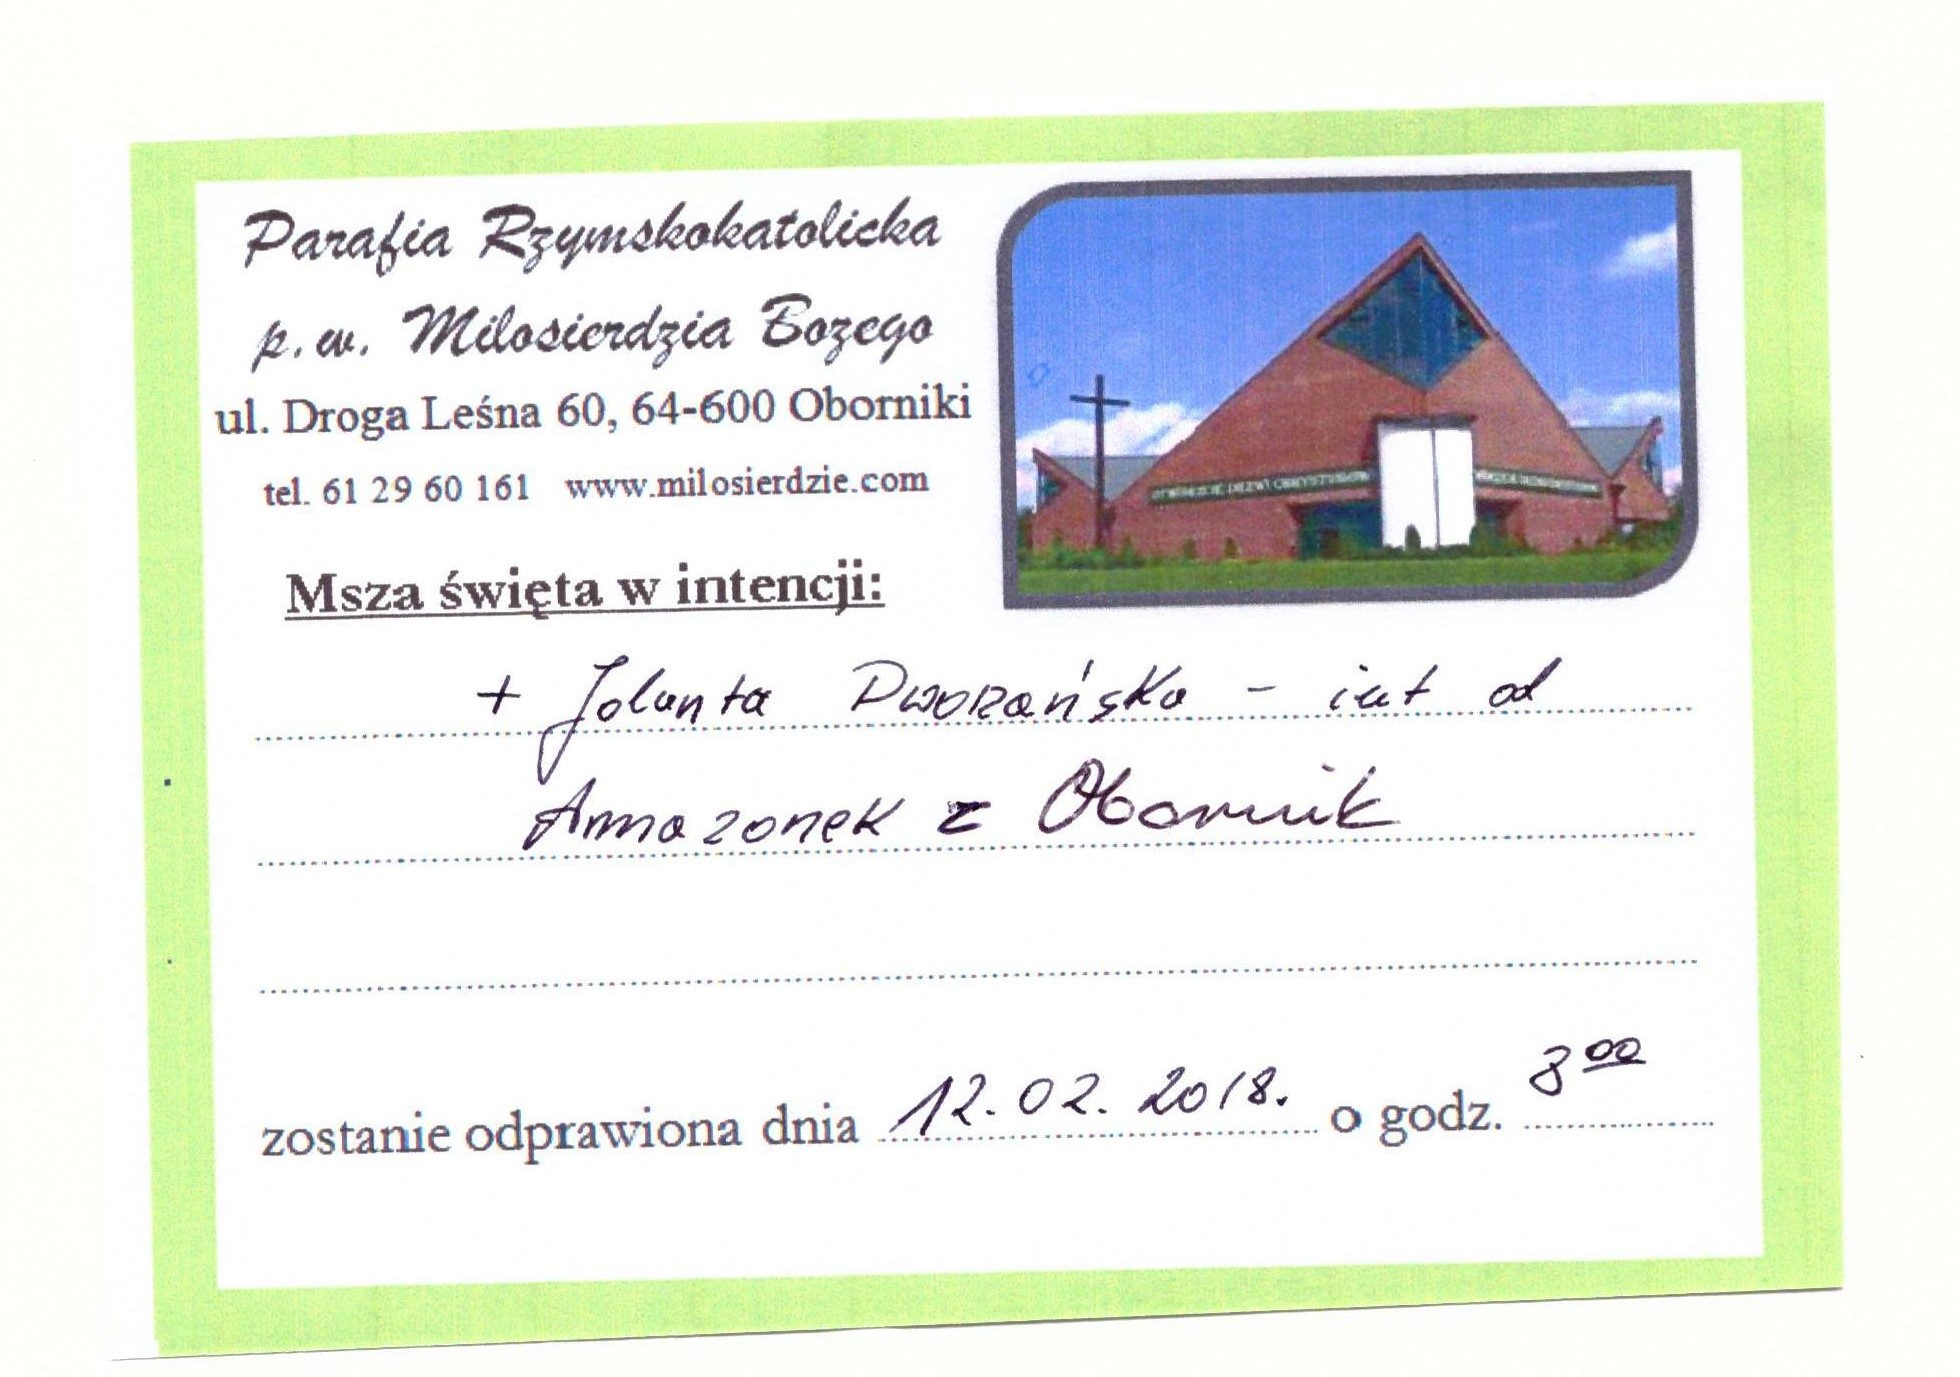 Parafia Rzymskokatolicka
p.w. Milosierdzia Bozego
ul. Droga Leśna 60, 64-600 Oborniki
tel. 61 29 60 161 www.milosierdzie.com
OTWÓRZCIE DRZWI CHRYSTUSOWI
Msza święta w intencji:
+ Jolanta Dworańska - int od
Amazonek z Obornik
zostanie odprawiona dnia 12.02.2018. o godz. 8⁰⁰